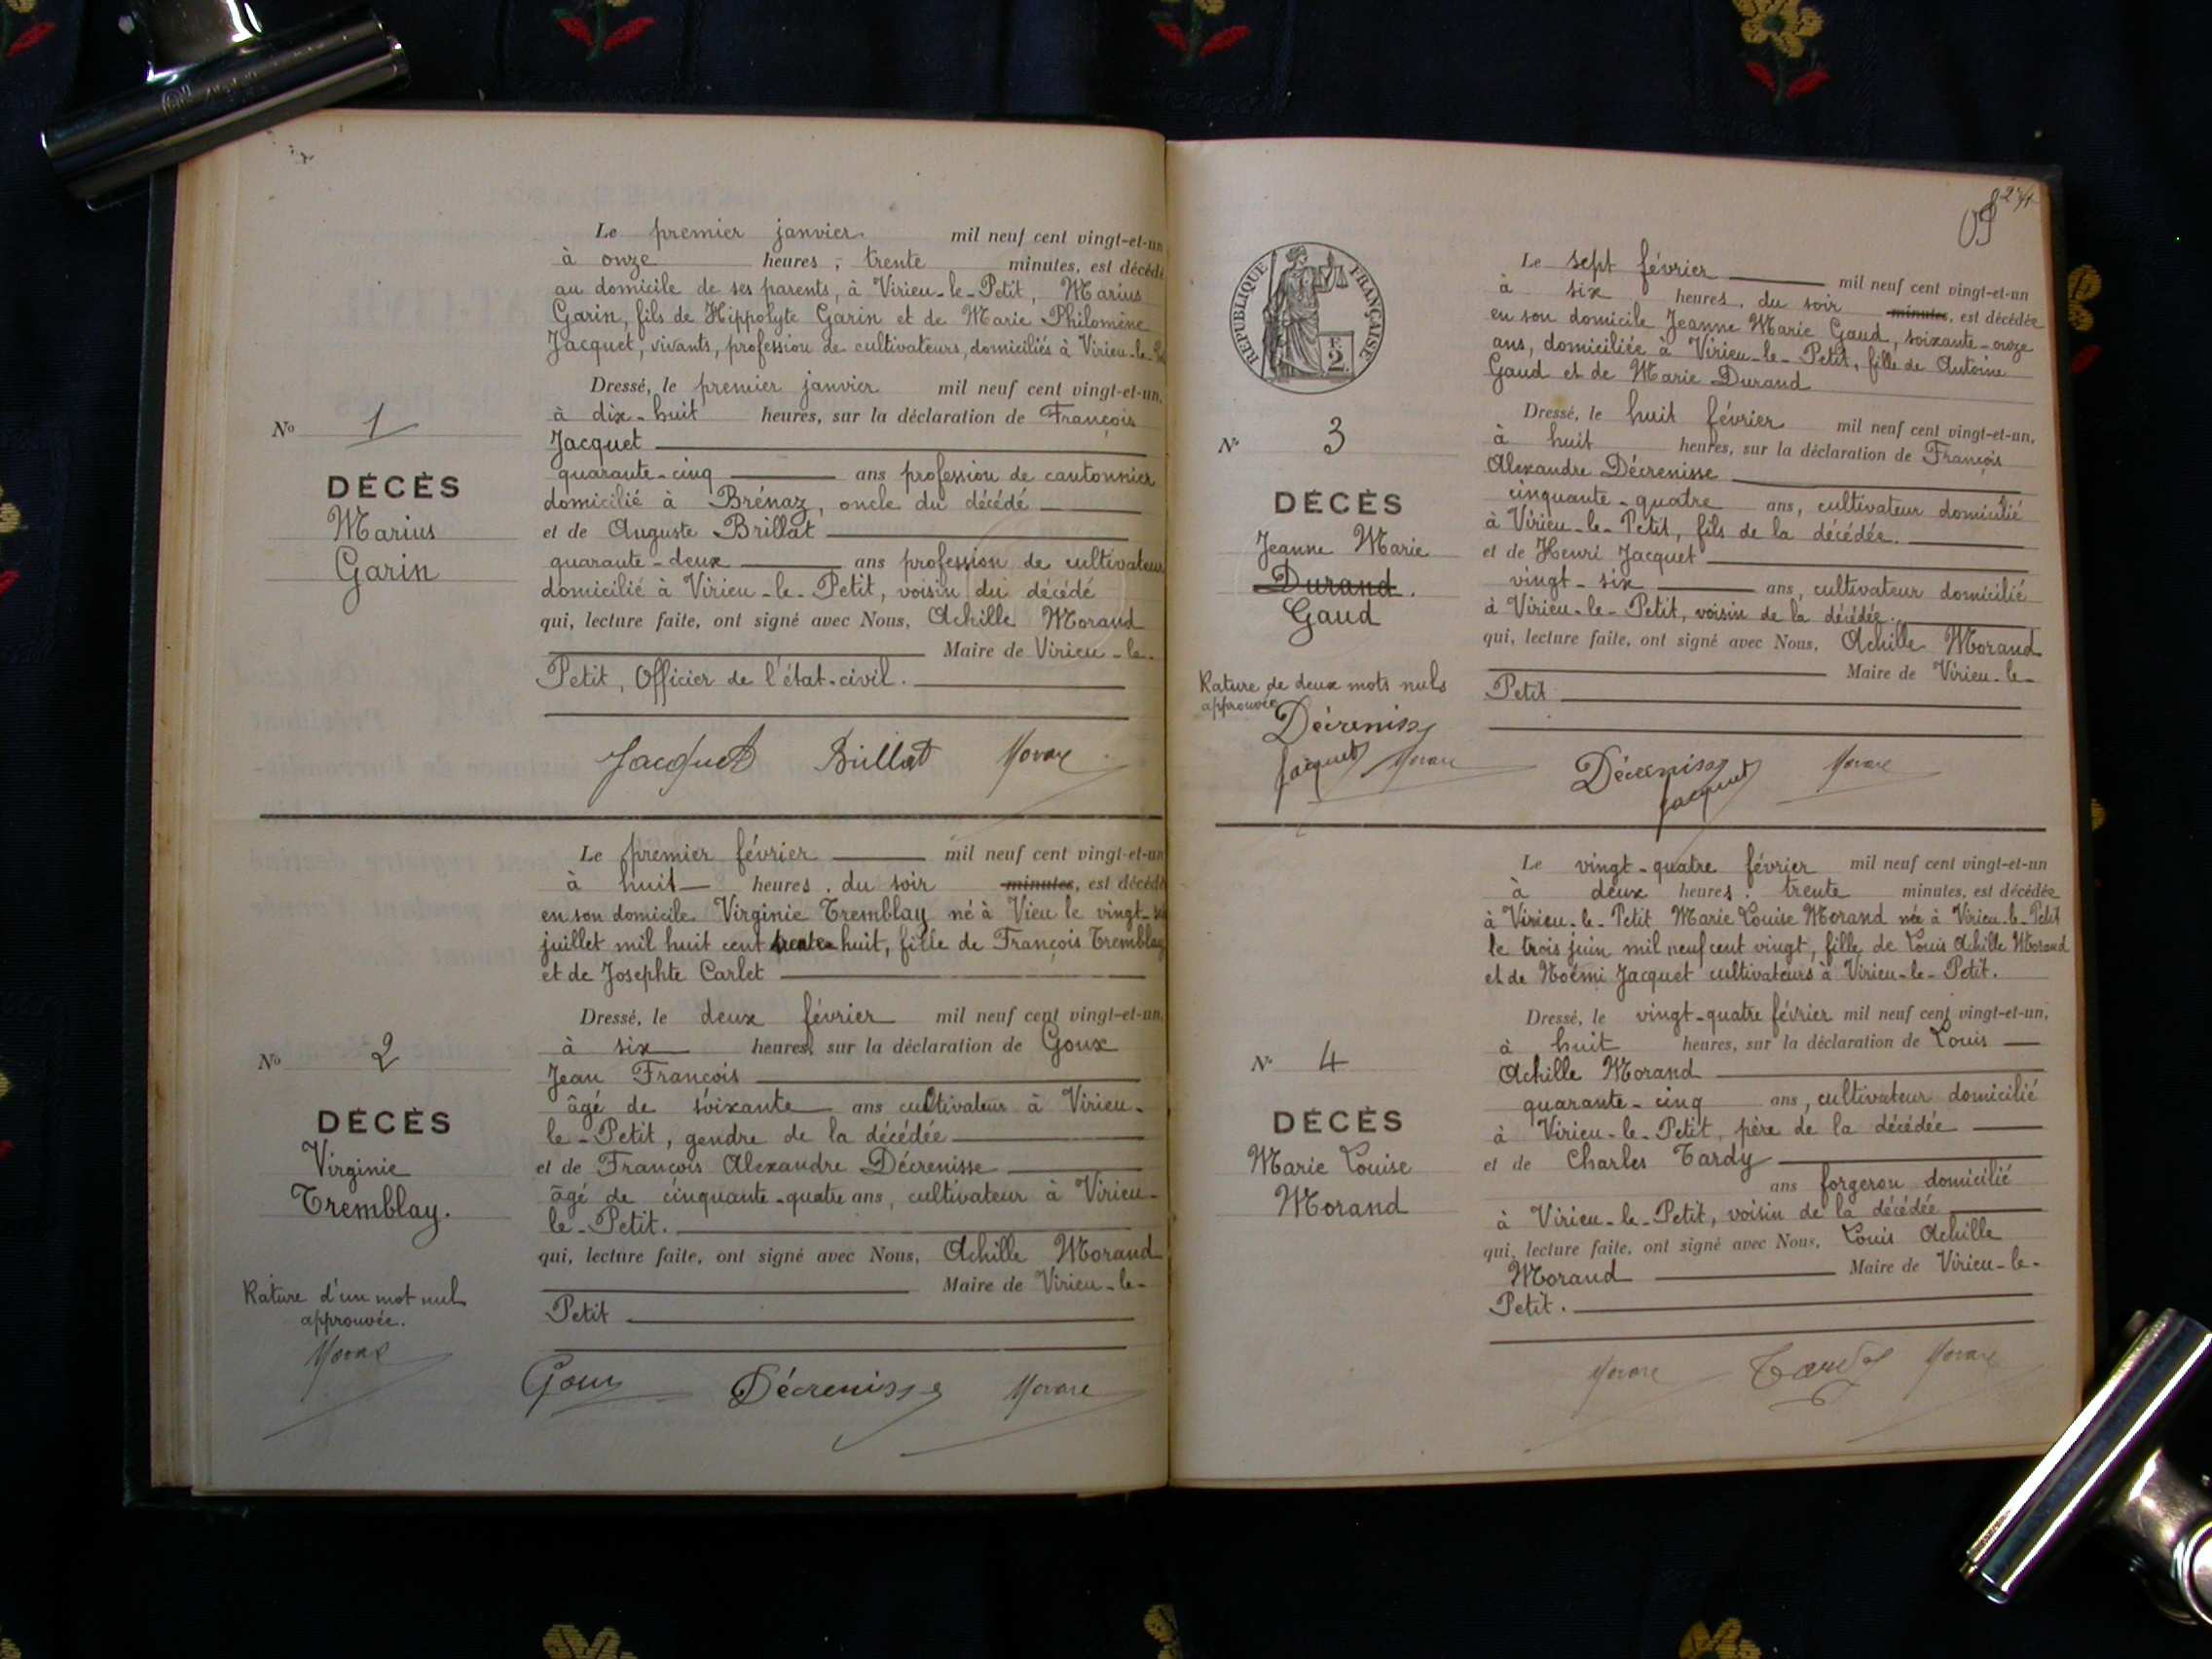 Le premier janvier mil neuf cent vingt-et-un
à onze heures, trente minutes, est décédé
au domicile de ses parents, à Virieu-le-Petit, Marius
Garin, fils de Hippolyte Garin et de Marie Philomène
Jacquet, vivants, profession de cultivateurs, domiciliés à Virieu-le-
Dressé, le premier janvier mil neuf cent vingt-et-un,
à dix-huit heures, sur la déclaration de François
Jacquet
quarante-cinq ans profession de cantonnier
domicilié à Brénaz, oncle du décédé
et de Auguste Brillat
quarante-deux ans profession de cultivateur
domicilié à Virieu-le-Petit, voisin du décédé
qui, lecture faite, ont signé avec Nous, Achille Morand
Maire de Virieu-le-
Petit, Officier de l'état-civil.
Nº 1
DÉCÈS
Marius
Garin
Jacquet Brillat Morand
Le premier février mil neuf cent vingt-et-un
à huit heures. du soir minutes, est décédé
en son domicile Virginie Tremblay né à Vieu le vingt-
juillet mil huit cent trente huit, fille de François Tremblay
et de Josephte Carlet
Dressé, le deux février mil neuf cent vingt-et-un,
à six heures, sur la déclaration de Goux
Jean François
âgé de soixante ans cultivateur à Virieu-
le-Petit, gendre de la décédée
et de François Alexandre Décrenisse
âgé de cinquante-quatre ans, cultivateur à Virieu-
le-Petit.
qui, lecture faite, ont signé avec Nous, Achille Morand
Maire de Virieu-le-
Petit
Nº 2
DÉCÈS
Virginie
Tremblay.
Rature d'un mot nul
approuvée.
Morand
Goux Décrenisse Morand
2
Le sept février mil neuf cent vingt-et-un
à six heures. du soir minutes, est décédée
en son domicile Jeanne Marie Gaud, soixante-onze
ans, domiciliée à Virieu-le-Petit, fille de Antoine
Gaud et de Marie Durand
Dressé, le huit février mil neuf cent vingt-et-un,
à huit heures, sur la déclaration de François
Alexandre Décrenisse
cinquante-quatre ans, cultivateur domicilié
à Virieu-le-Petit, fils de la décédée.
et de Henri Jacquet
vingt-six ans, cultivateur domicilié
à Virieu-le-Petit, voisin de la décédée.
qui, lecture faite, ont signé avec Nous, Achille Morand
Maire de Virieu-le-
Petit
RÉPUBLIQUE FRANÇAISE
2
Nº 3
DÉCÈS
Jeanne Marie
Durand.
Gaud
Rature de deux mots nuls
approuvée
Décrenisse
Jacquet Morand
Décrenisse Jacquet Morand
Le vingt-quatre février mil neuf cent vingt-et-un
à deux heures. trente minutes, est décédée
à Virieu-le-Petit Marie Louise Morand née à Virieu-le-Petit
le trois juin mil neuf cent vingt, fille de Louis Achille Morand
et de Noémi Jacquet cultivateurs à Virieu-le-Petit.
Dressé, le vingt-quatre février mil neuf cent vingt-et-un,
à huit heures, sur la déclaration de Louis
Achille Morand
quarante-cinq ans, cultivateur domicilié
à Virieu-le-Petit, père de la décédée
et de Charles Tardy
ans forgeron domicilié
à Virieu-le-Petit, voisin de la décédée
qui, lecture faite, ont signé avec Nous, Louis Achille
Morand Maire de Virieu-le-
Petit.
Nº 4
DÉCÈS
Marie Louise
Morand
Morand Tardy Morand